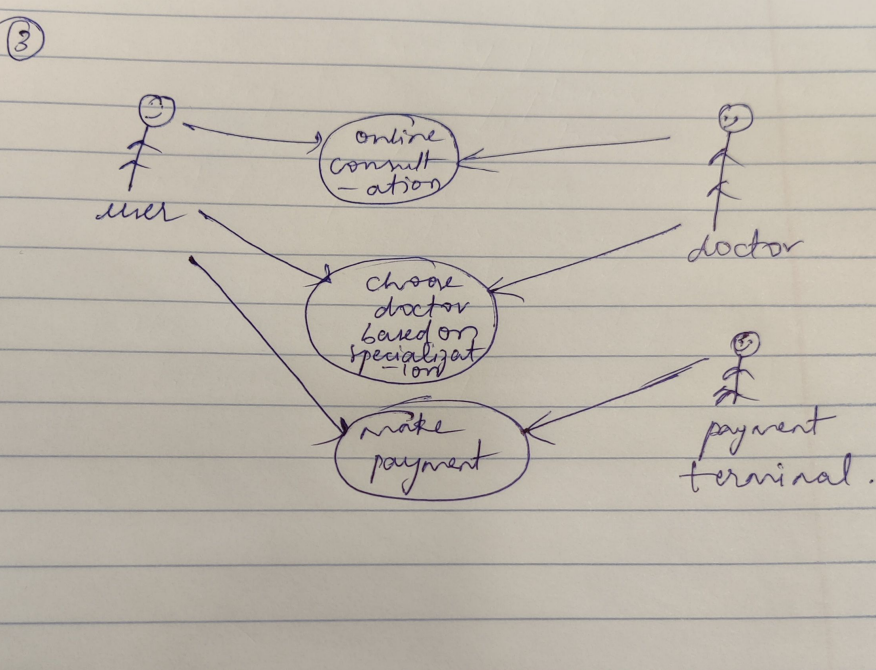 3
online
consult
-ation
user
doctor
choose
doctor
based on
specializat
-ion
make
payment
payment
terminal.